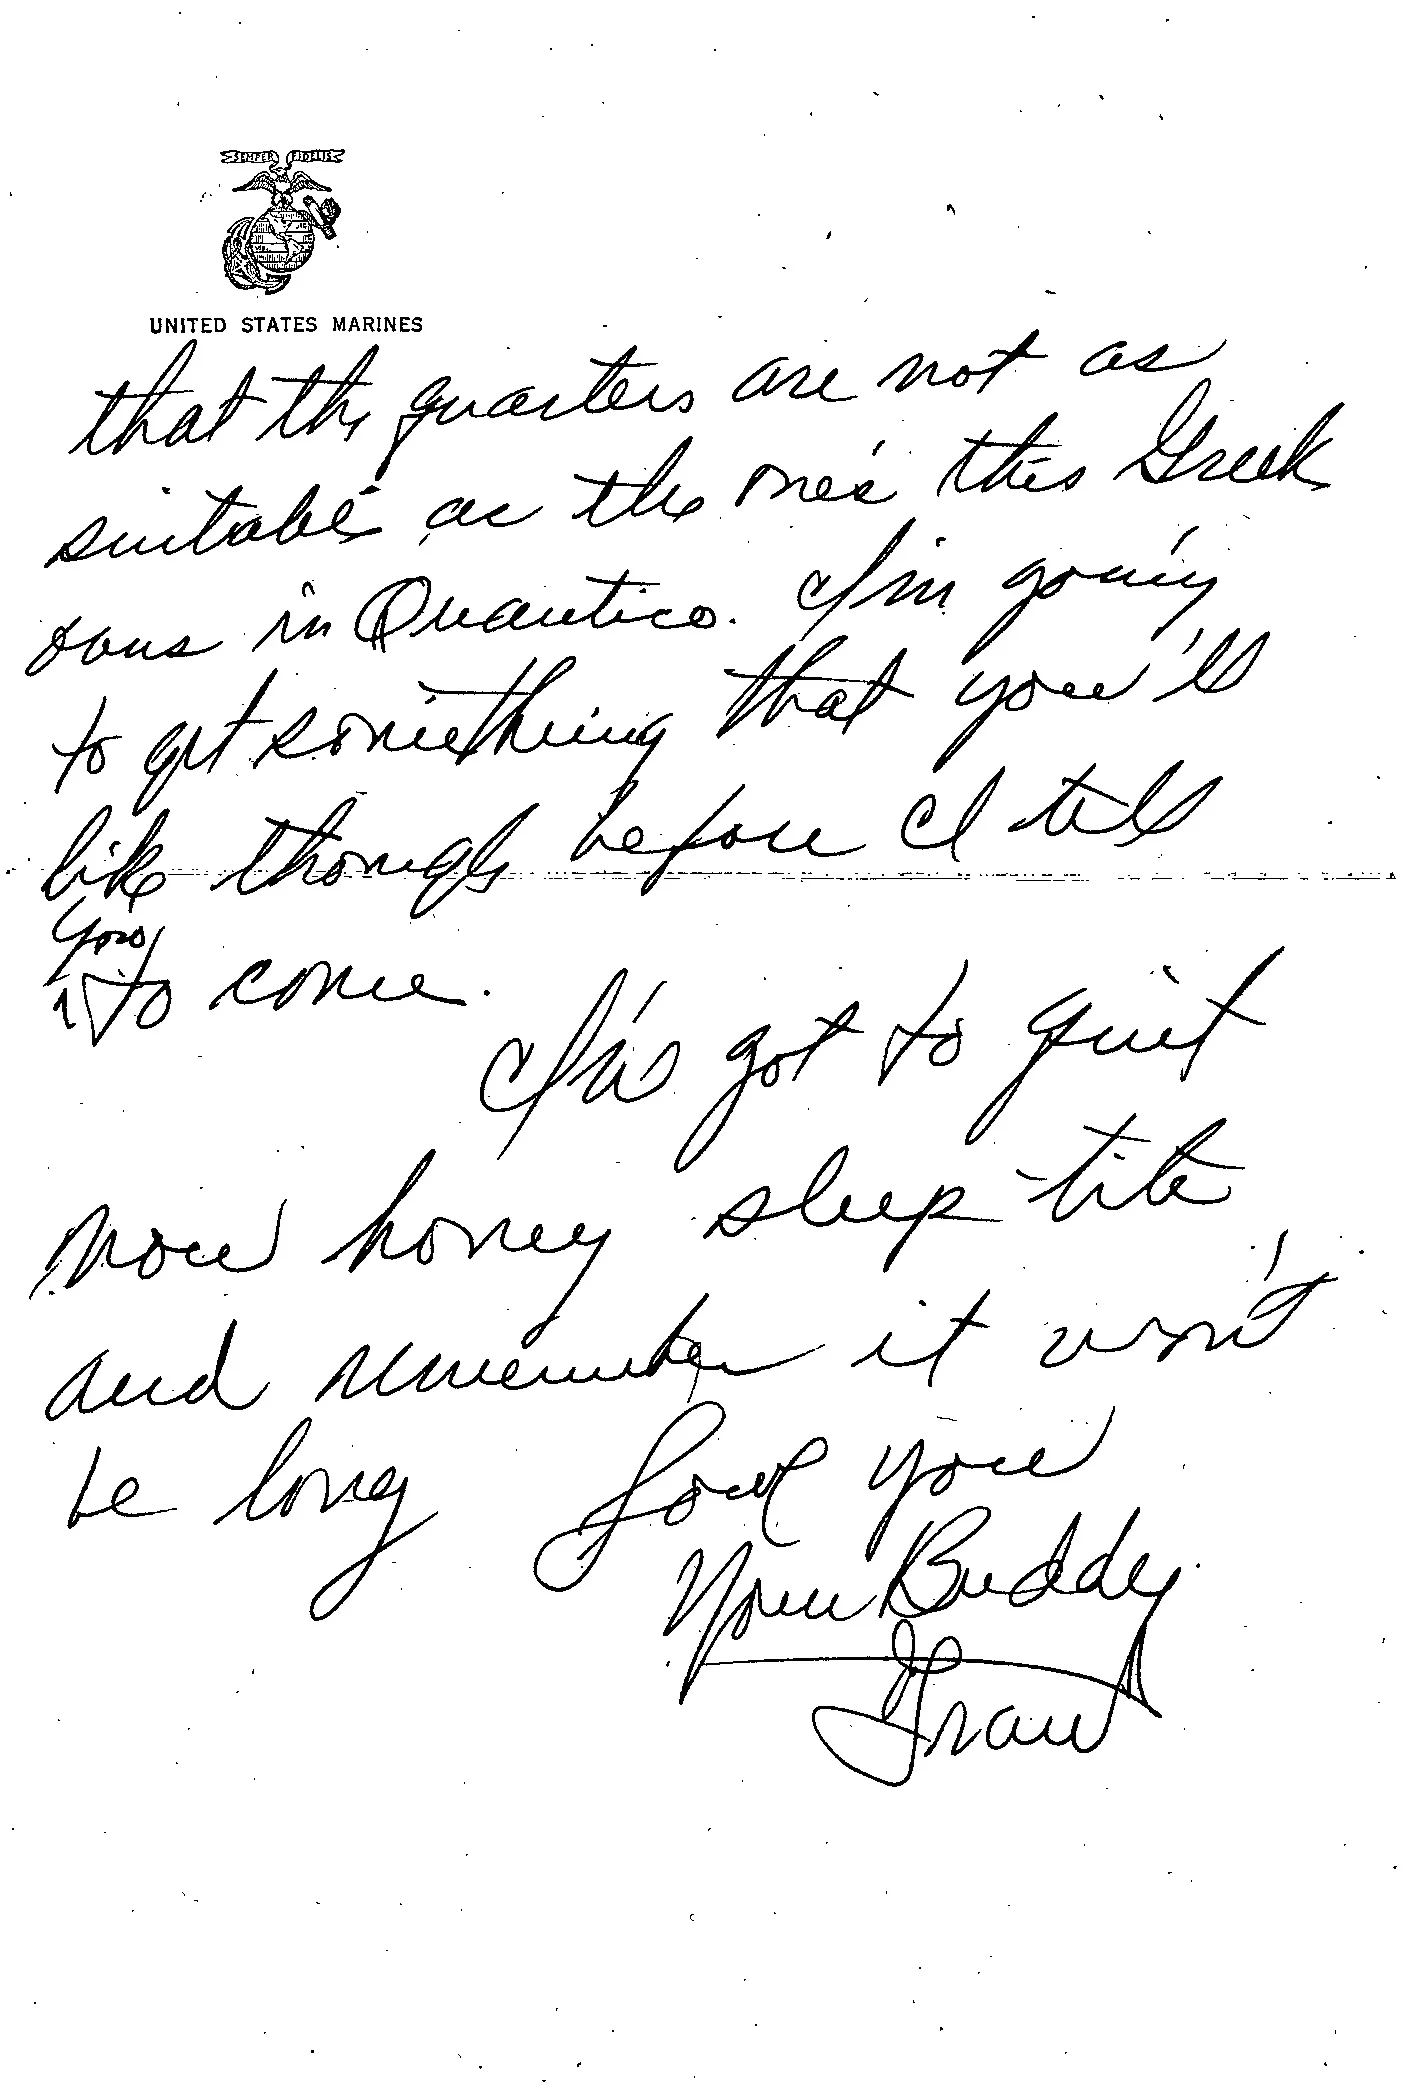 SEMPER FIDELIS
UNITED STATES MARINES
that the quarters are not as
suitable as the one's this Greek
owns in Quantico. I'm going
to get something that you'll
like though before I tell
you
to come.
I've got to quit
now honey sleep tite
and remember it won't
be long Love you
Your Buddy